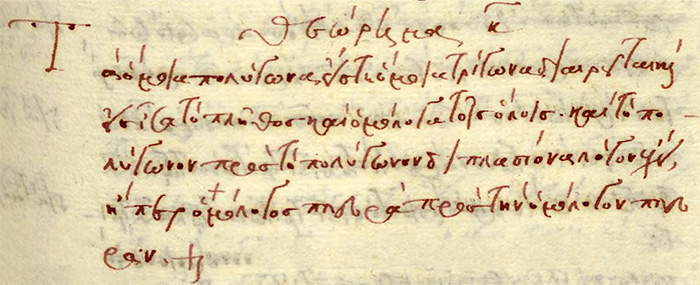 Θεώρημα κ̄
Τὰ ὅμοια πολύγωνα, εἴς τε ὅμοια τρίγωνα διαιρεῖται, καὶ
εἰς ἴσα τὸ πλῆθος καὶ ὁμόλογα τοῖς ὅλοις· καὶ τὸ πο-
λύγωνον πρὸς τὸ πολύγωνον διπλασίονα λόγον ἔχει,
ἤπερ ὁμόλογος πλευρὰ πρὸς τὴν ὁμόλογον πλευ
ράν.